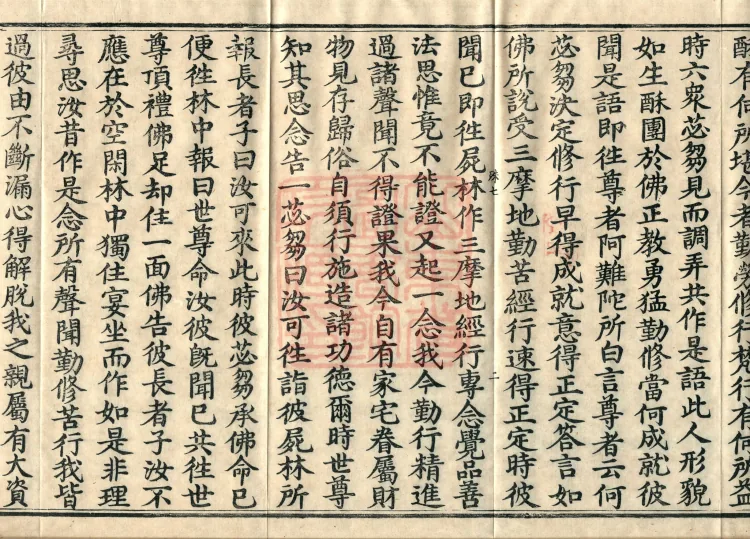 有何所今者勤修行梵行有何所益
時六眾苾芻見而調弄共作是語此人形貌
如生酥團於佛正教勇猛勤修當何成就彼
聞是語即往尊者阿難陀所白言尊者云何
苾芻決定修行早得成就意得正定答言如
佛所說受三摩地勤苦經行速得正定時彼
七 二
聞已即往屍林作三摩地經行專念覺品善
法思惟竟不能證又起一念我今勤行精進
過諸聲聞不得證果我今自有家宅眷屬財
物見存歸俗自須行施造諸功德爾時世尊
知其思念告一苾芻曰汝可往詣彼屍林所
報長者子曰汝可來此時彼苾芻承佛命已
便往林中報曰世尊命汝彼既聞已共往世
尊頂禮佛足却住一面佛告彼長者子汝不
應在於空閑林中獨住宴坐而作如是非理
尋思汝昔作是念所有聲聞勤修苦行我皆
過彼由不斷漏心得解脫我之親屬有大資